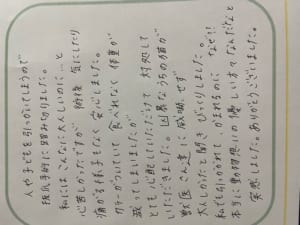 人や子どもを引っかいてしまうので
抜爪手術に踏み切りました。
私にはこんなに大人しいのに…と
心苦しかったですが 術後 気にしたり
痛がる様子もなく 安心しました。
カラーがついていて 食べれなく 体重が
減ってしまいましたが
とても心配していただけて 対処して
いただきました。凶暴なうちの猫が
獣医さん達に 威嚇せず
大人しかったと聞き びっくりしました。
私でも引っかかれて、かまれるのに なぜ!!
本当に動物想いの優しい方々なんだなと
実感しました。ありがとうございました。